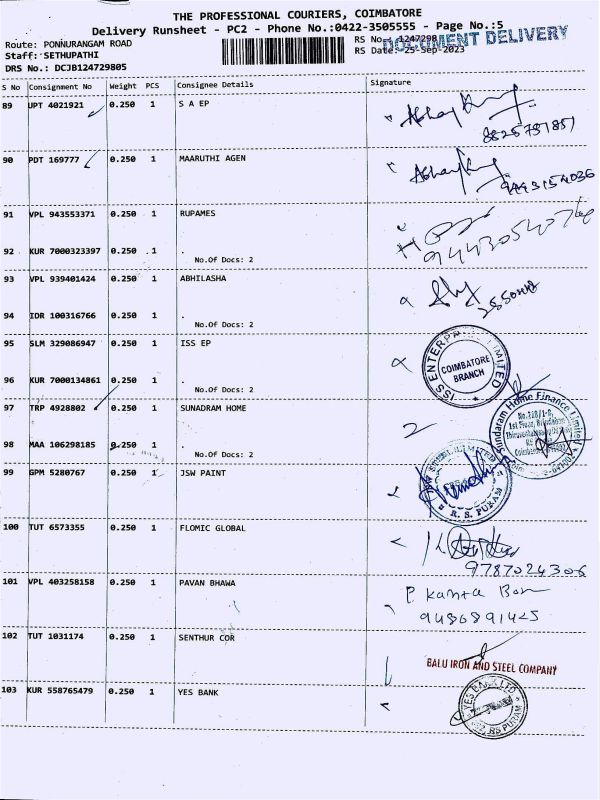 THE PROFESSIONAL COURIERS, COIMBATORE
Delivery Runsheet - PC2 - Phone No.:0422-3505555 - Page No.:5
Route: PONNURANGAM ROAD
RS No.: 1247298
DOCUMENT DELIVERY
Staff: SETHUPATHI
RS Date: 25-Sep-2023
DRS No.: DCJB124729805
S No Consignment No Weight PCS Consignee Details Signature
89 UPT 4021921 0.250 1 S A EP
8825751851
90 PDT 169777 0.250 1 MAARUTHI AGEN
9443154036
91 VPL 943553371 0.250 1 RUPAMES
92 KUR 7000323397 0.250 1 .
No.Of Docs: 2
93 VPL 939401424 0.250 1 ABHILASHA
94 IDR 100316766 0.250 1 .
No.Of Docs: 2
95 SLM 329086947 0.250 1 ISS EP
ISS ENTERPRI LIMITED
COIMBATORE
BRANCH
96 KUR 7000134861 0.250 1 .
No.Of Docs: 2
97 TRP 4928802 0.250 1 SUNADRAM HOME
Sundaram Home Finance Limited
98 MAA 106298185 0.250 1 .
No.Of Docs: 2
99 GPM 5280767 0.250 1 JSW PAINT
R. S. PURAM
100 TUT 6573355 0.250 1 FLOMIC GLOBAL
9787024306
101 VPL 403258158 0.250 1 PAVAN BHAWA
P Kanta Ban
9486891425
102 TUT 1031174 0.250 1 SENTHUR COR
BALU IRON AND STEEL COMPANY
103 KUR 558765479 0.250 1 YES BANK
YES BANK LTD
RS PURAM